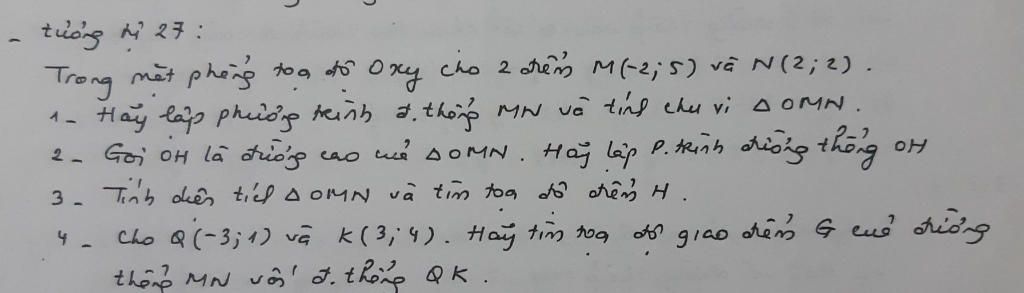 - tương tự 27 :
Trong mặt phẳng tọa độ Oxy cho 2 điểm M(-2; 5) và N(2; 2).
1 - Hãy lập phương trình đ. thẳng MN và tính chu vi △OMN.
2 - Gọi OH là đường cao của △OMN. Hãy lập P. trình đường thẳng OH
3 - Tính diện tích △OMN và tìm tọa độ điểm H.
4 - Cho Q(-3; 1) và K(3; 4). Hãy tìm tọa độ giao điểm G của đường
thẳng MN với đ. thẳng QK.